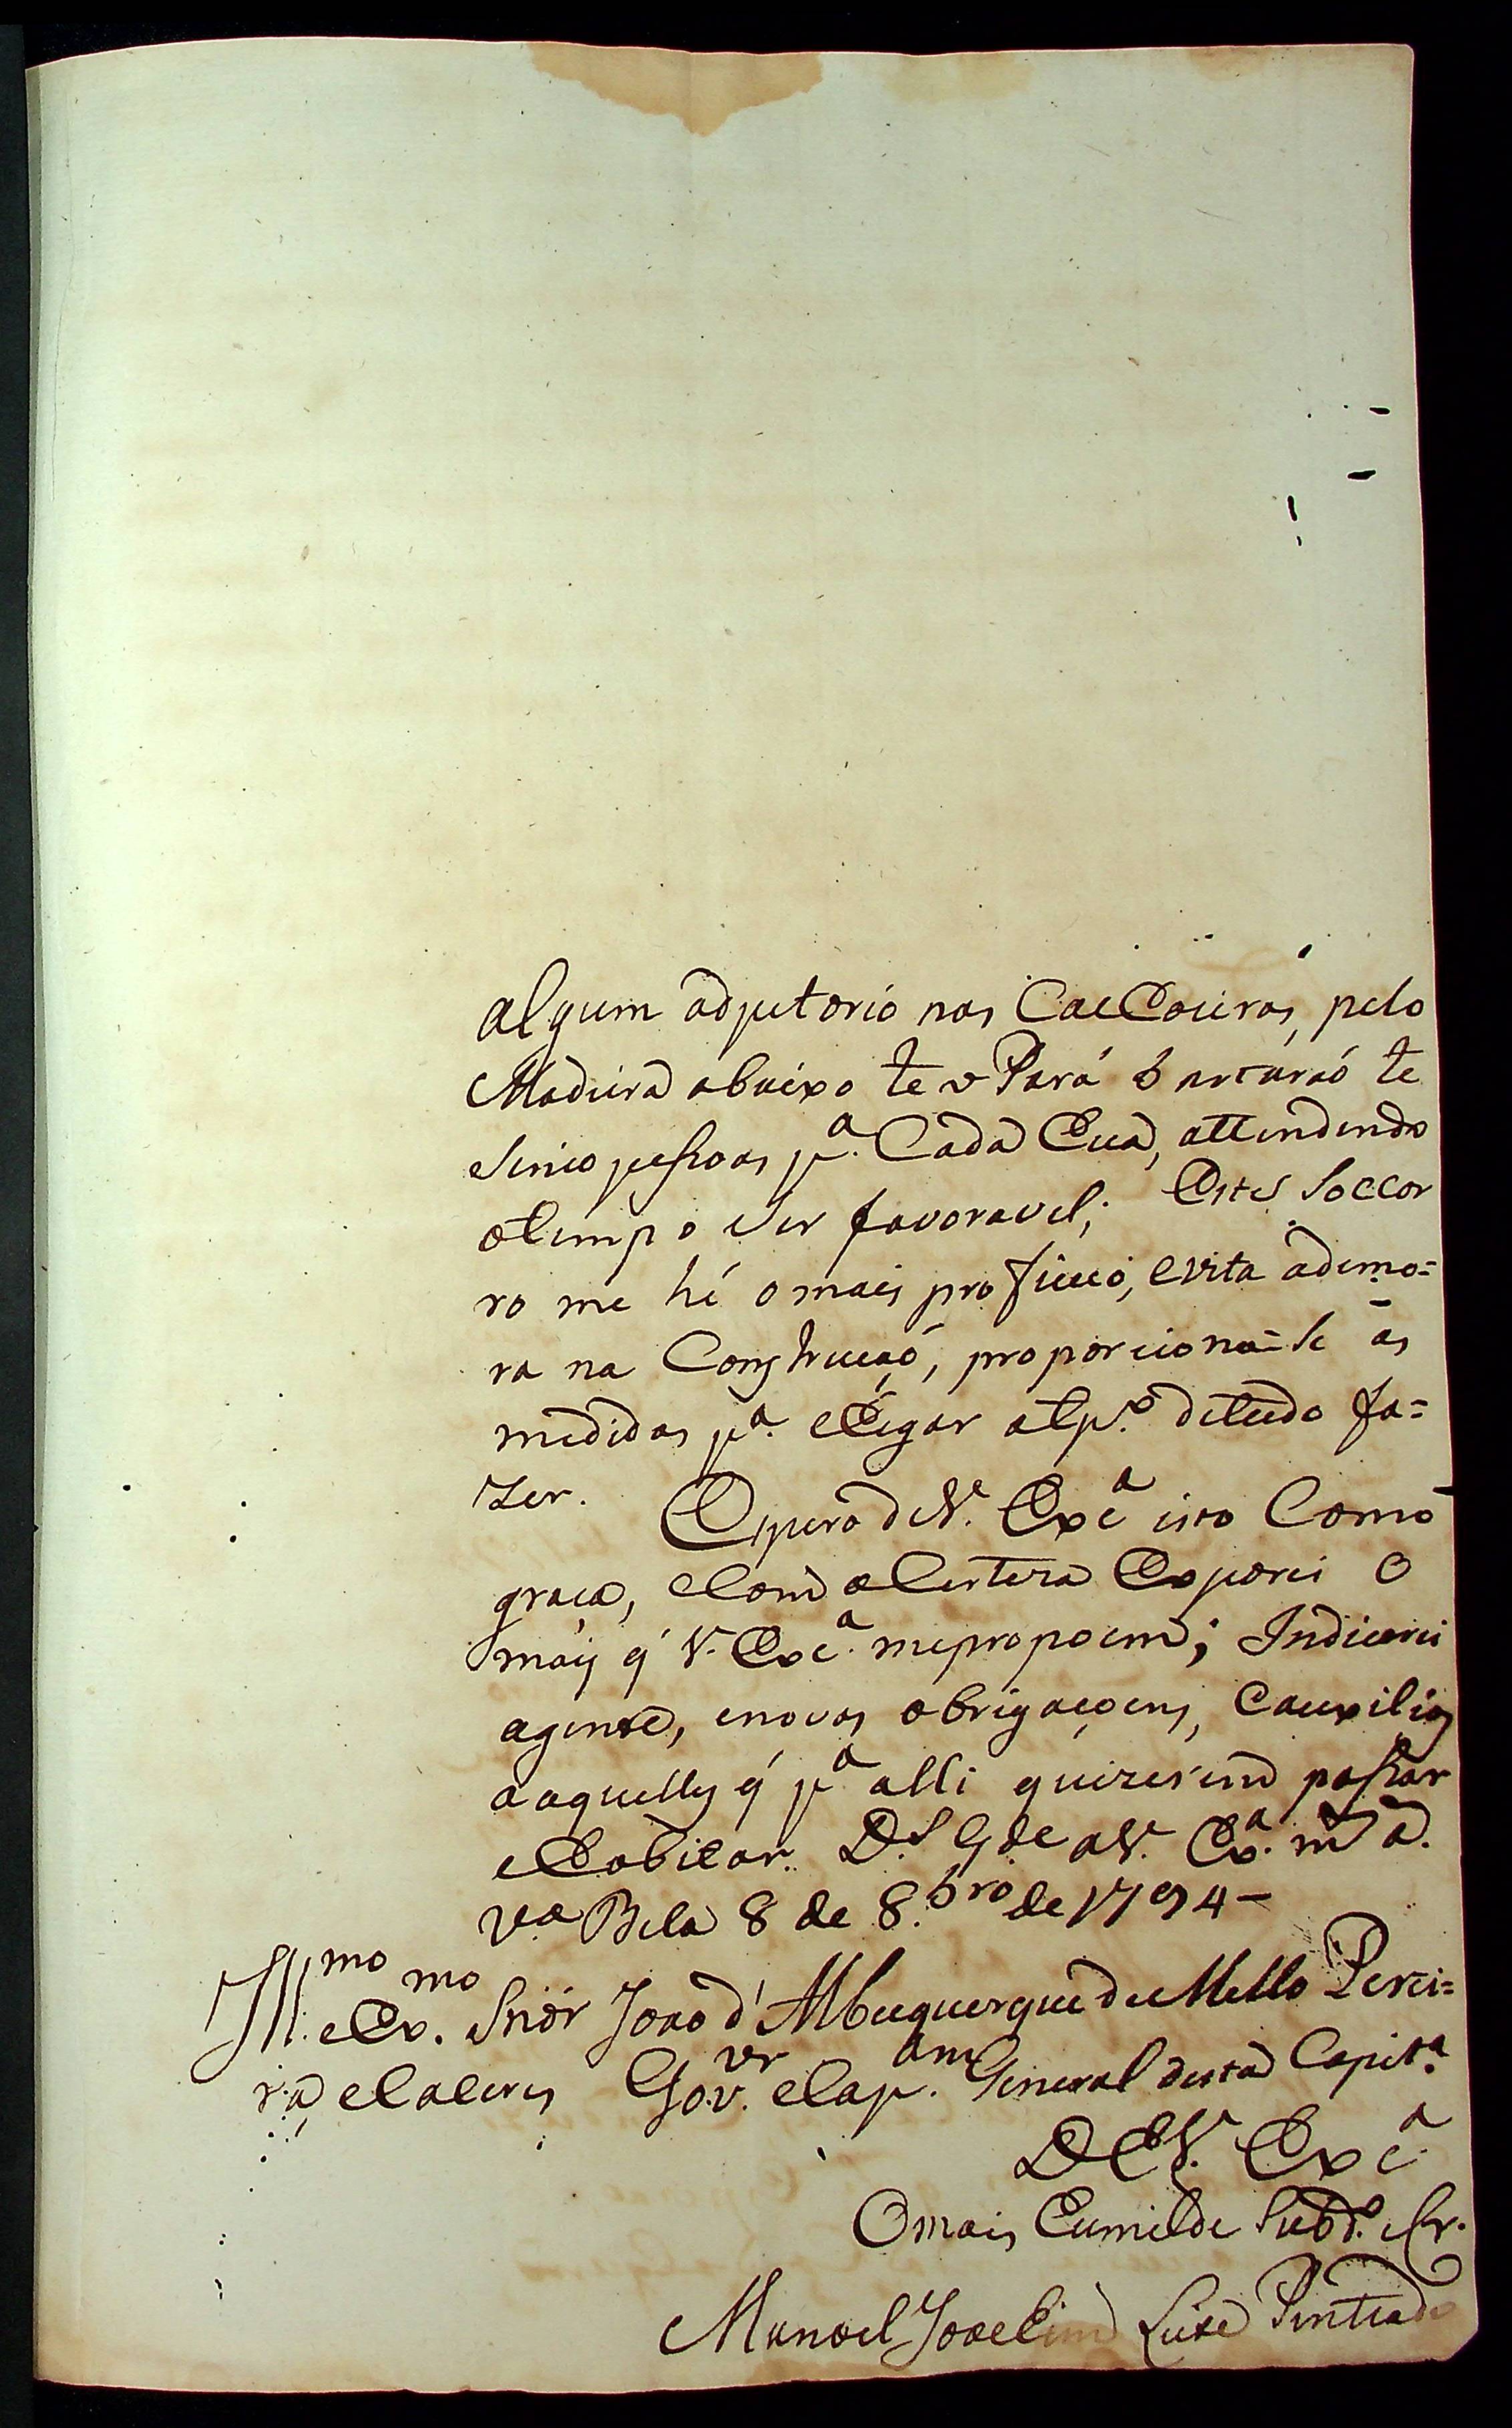 algum adjutorio nas Caxoeiras, pelo
Madeira abaixo te o Pará bastaráõ te
sinco pessoas p.ª Cada hua, attendendo
otempo ser favoravel; Este Soccor
ro me hé omais proficuo, evita ademo=
ra na Construcçaõ, proporciona-se as
medidas p.ª chegar atp.º detudo fa=
zer. Espero de V. Exc.ª isto Como
graça, eCom aCerteza Exporei o
mais q' V. Exc.ª mepropoem; Indicarei
agente, enovas obrigaçoens, eauxilios
aaquelles q' p.ª alli quizerem passar
ehabitar. D.s G.de aV. Ex.ª m.s a.
V.ª Bela 8 de 8.bro de 1794 -
Ill.mo eEx.mo Snõr Joaõ d'Albuquerque deMello Perei=
ra, eCaceres Gov.or eCap.am General desta Capit.ª
DeV. Exc.ª
Omais humilde Subd.º eCr.
Manoel Joachim Leite Penteado